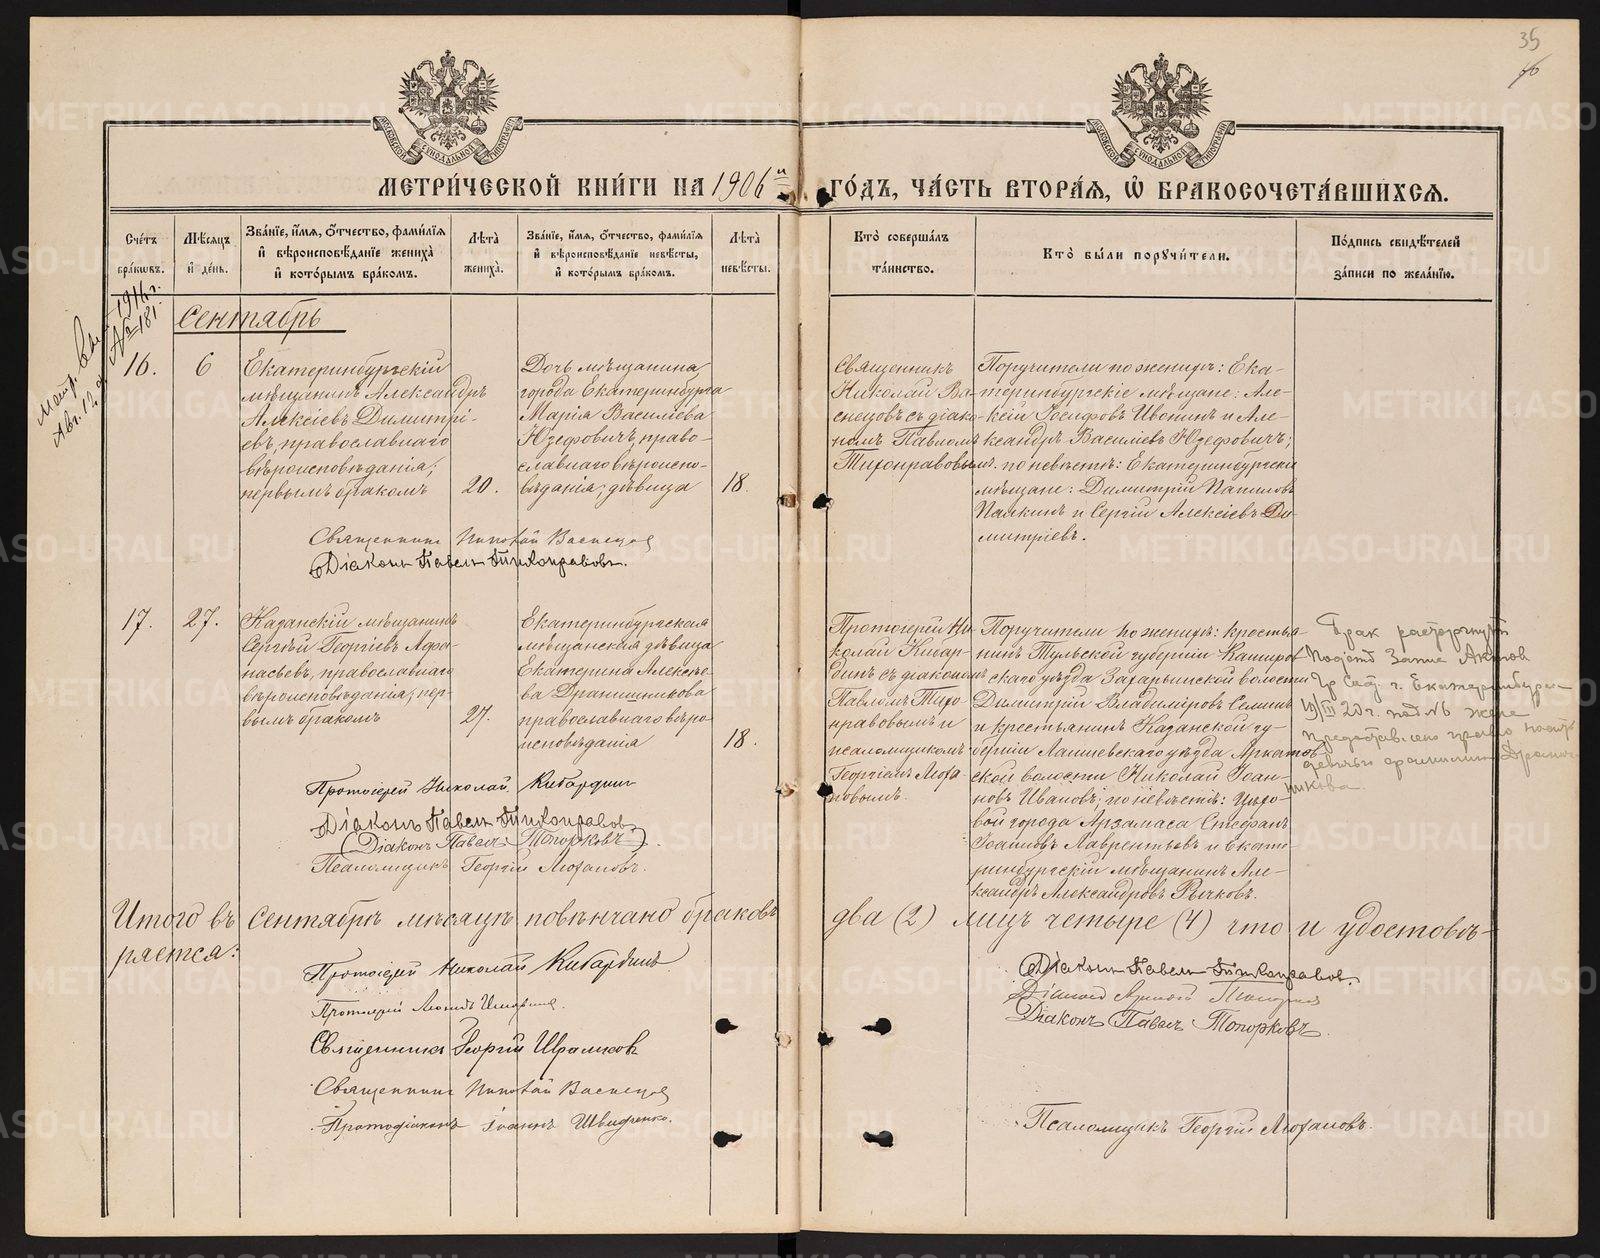 35
МЕТРИ́ЧЕСКОЙ КНИ́ГИ НА 1906й ГО́ДЪ, ЧА́СТЬ ВТОРА́Я, Ѡ БРАКОСОЧЕТА́ВШИХСЯ.
Сче́тъ бра́ковъ.
Мѣ́сяцъ и́ де́нь.
Зва́нїе, и́мя, о́тчество, фами́лїя и́ вѣроисповѣ́данїе жениха̀ и́ кото́рымъ бра́комъ.
Лѣ́та жениха̀.
Зва́нїе, и́мя, о́тчество, фами́лїя и́ вѣроисповѣ́данїе невѣ́сты, и́ кото́рымъ бра́комъ.
Лѣ́та невѣ́сты.
Кто̀ соверша́лъ та́инство.
Кто̀ бы́ли поручи́тели.
По́дпись свидѣ́телей за́писи по жела́нїю.
1916 г.
№ 181
Сентябрь
16.
6
Екатеринбургскій
мѣщанинъ Александръ
Алексіевъ Димитрі-
евъ, православнаго
вѣроисповѣданія;
первымъ бракомъ
20.
Дочь мѣщанина
города Екатеринбурга
Марія Васильева
Юзефовичъ, право-
славнаго вѣроиспо-
вѣданія; дѣвица
18.
Священникъ
Николай Ва-
снецовъ съ діако-
номъ Павломъ
Тихонравовымъ.
Поручители по женихѣ: Ека-
теринбургскіе мѣщане: Але-
ксій Іосифовъ Ивонинъ и Але-
ксандръ Васильевъ Юзефовичъ;
по невѣстѣ: Екатеринбургскіе
мѣщане: Димитрій Папиловъ
Палкинъ и Сергій Алексіевъ Ди-
митріевъ.
Священникъ Николай Васнецов
Діаконъ Павелъ Тихонравовъ.
17.
27.
Казанскій мѣщанинъ
Сергѣй Георгіевъ Афа-
насьевъ, православнаго
вѣроисповѣданія; пер-
вымъ бракомъ
27.
Екатеринбургская
мѣщанская дѣвица
Екатерина Алексѣе-
ва Дранишникова
православнаго вѣро-
исповѣданія
18.
Протоіерей Ни-
колай Кибар-
динъ съ діакономъ
Павломъ Тихо-
нравовымъ и
псаломщикомъ
Георгіемъ Люха-
новымъ.
Поручители по женихѣ: крестья-
нинъ Тульской губерніи Каширов-
скаго уѣзда Захарьинской волости
Димитрій Владиміровъ Семинъ
и крестьянинъ Казанской гу-
берніи Лаишевскаго уѣзда Аркатов-
ской волости Николай Іоан-
новъ Ивановъ; по невѣстѣ: Цехо-
вой города Арзамаса Стефанъ
Іоанновъ Лаврентьевъ и Екате-
ринбургскій мѣщанинъ Але-
ксандръ Александровъ Рычковъ.
Брак расторгнут
Подотд Запис Актов
Гр Сост г. Екатеринбурга
предоставлено право носить
девичью фамилию Дранишникова
Протоіерей Николай Кибардинъ
Діаконъ Павелъ Тихонравов
(Діаконъ Павелъ Топорковъ).
Псаломщикъ Георгій Люхановъ.
Итого въ сентябрѣ мѣсяцѣ повѣнчано браковъ два (2) лицъ четыре (4) что и удостовѣ-
ряется:
Протоіерей Николай Кибардинъ
Священникъ Георгій
Священникъ Николай Васнецов
Протодіаконъ Іоаннъ Швидченко.
Діаконъ Павелъ Тихонравов.
Діаконъ Павелъ Топорковъ.
Псаломщикъ Георгій Люхановъ.